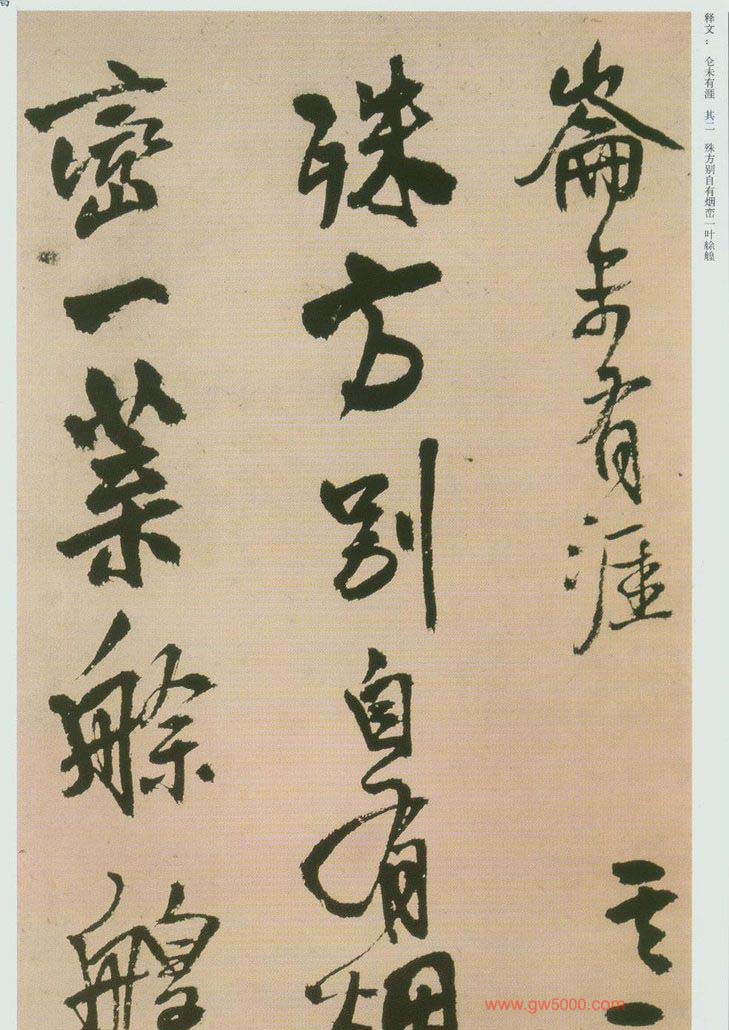 崙未有涯 其二
殊方别自有烟
巒一葉艅艎
释文： 仑未有涯 其二 殊方别自有烟峦一叶艅艎
www.gw5000.com